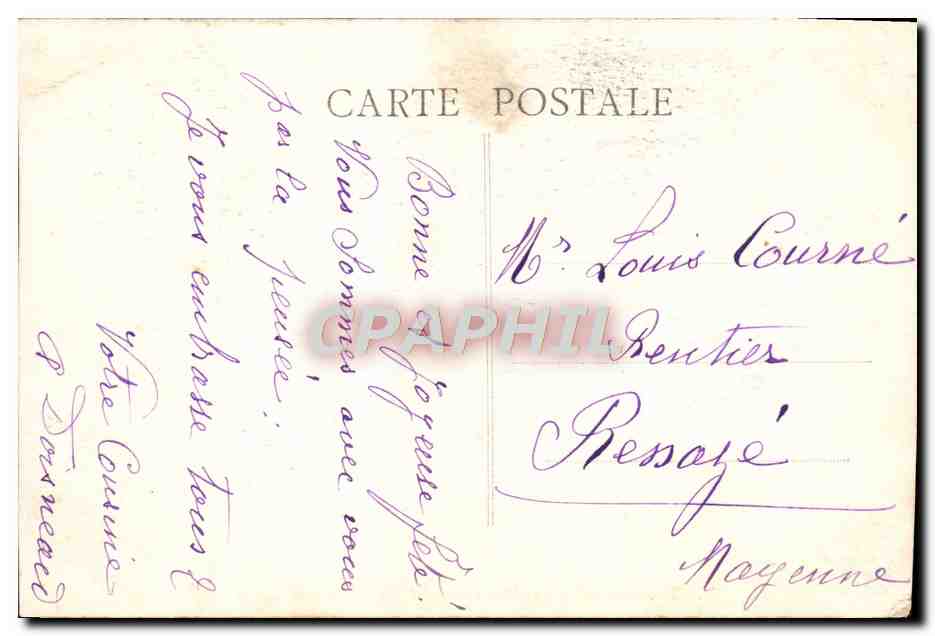 CARTE POSTALE
Bonne et joyeuse fête !
Nous Sommes avec vous
par la pensée.
Je vous embrasse tous 2
Votre Cousine
Doisneau
Mr. Louis Courné
Rentier
Renazé
Mayenne
CPAPHIL